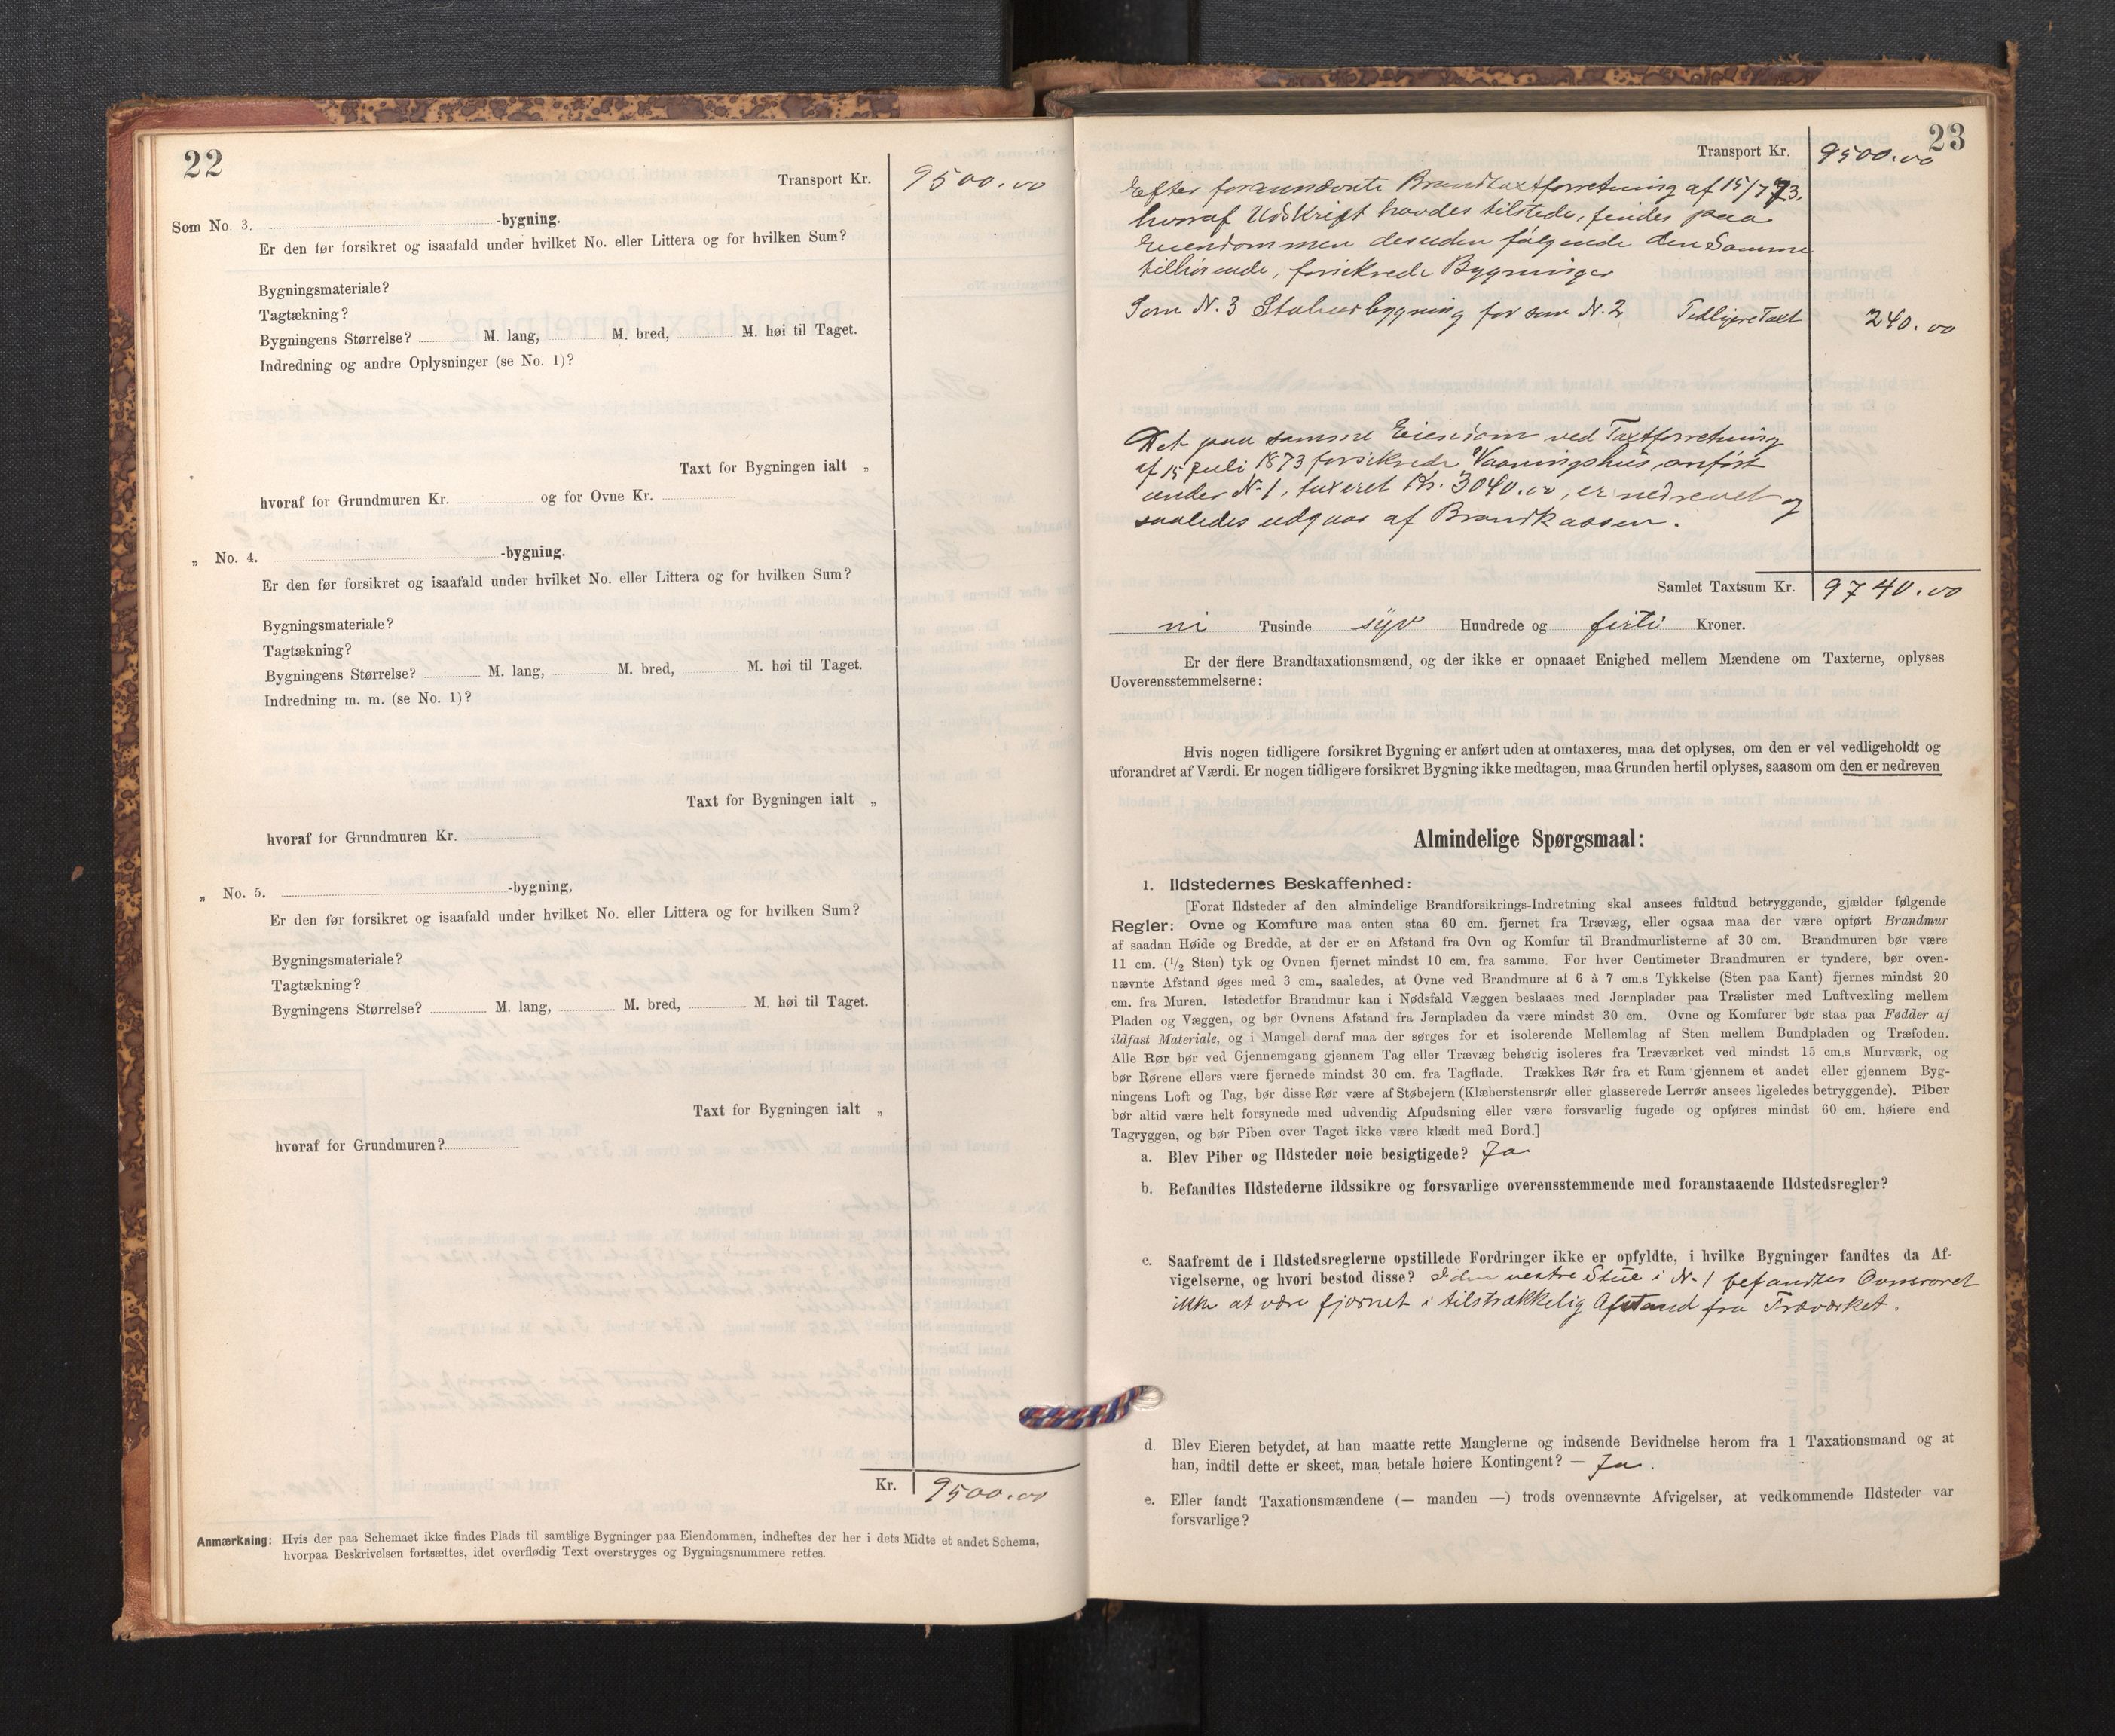 22
Transport Kr. 9500.00
Som No. 3. -bygning.
Er den før forsikret og isaafald under hvilket No. eller Littera og for hvilken Sum?
Bygningsmateriale?
Tagtækning?
Bygningens Størrelse? M. lang, M. bred, M. høi til Taget.
Indredning og andre Oplysninger (se No. 1)?
Taxt for Bygningen ialt „
hvoraf for Grundmuren Kr. og for Ovne Kr.
„ No. 4. -bygning.
Er den før forsikret og isaafald under hvilket No. eller Littera og for hvilken Sum?
Bygningsmateriale?
Tagtækning?
Bygningens Størrelse? M. lang, M. bred, M. høi til Taget.
Indredning m. m. (se No. 1)?
Taxt for Bygningen ialt „
hvoraf for Grundmuren Kr.
„ No. 5. -bygning,
Er den før forsikret og isaafald under hvilket No. eller Littera og for hvilken Sum?
Bygningsmateriale?
Tagtækning?
Bygningens Størrelse? M. lang, M. bred, M. høi til Taget.
Taxt for Bygningen ialt „
hvoraf for Grundmuren?
Kr. 9500.00
Anmærkning: Hvis der paa Schemaet ikke findes Plads til samtlige Bygninger paa Eiendommen, indheftes der her i dets Midte et andet Schema,
hvorpaa Beskrivelsen fortsættes, idet overflødig Text overstryges og Bygningsnummere rettes.
23
Transport Kr. 9500.00
Efter forannævnte Brandtaxtforretning af 15/7 73,
hvoraf Udskrift havdes tilstede, findes paa
Eiendommen desuden følgende den Samme
tilhørende, forsikrede Bygninger
Som N. 3 Staburbygning før som N. 2 Tidligere Taxt 240.00
Det paa samme Eiendom ved Taxtforretning
af 15 Juli 1873 forsikrede Vaaningshus, anført
under N. 1, taxeret Kr. 3040.00, er nedrevet og
saaledes udgaar af Brandkassen.
Samlet Taxtsum Kr. 9740.00
ni Tusinde syv Hundrede og firti Kroner.
Er der flere Brandtaxationsmænd, og der ikke er opnaaet Enighed mellem Mændene om Taxterne, oplyses
Uoverensstemmelserne:
Hvis nogen tidligere forsikret Bygning er anført uden at omtaxeres, maa det oplyses, om den er vel vedligeholdt og
uforandret af Værdi. Er nogen tidligere forsikret Bygning ikke medtagen, maa Grunden hertil oplyses, saasom om den er nedreven
Almindelige Spørgsmaal:
1. Ildstedernes Beskaffenhed:
[Forat Ildsteder af den almindelige Brandforsikrings-Indretning skal ansees fuldtud betryggende, gjælder følgende
Regler: Ovne og Komfure maa enten staa 60 cm. fjernet fra Trævæg, eller ogsaa maa der være opført Brandmur
af saadan Høide og Bredde, at der er en Afstand fra Ovn og Komfur til Brandmurlisterne af 30 cm. Brandmuren bør være
11 cm. (1/2 Sten) tyk og Ovnen fjernet mindst 10 cm. fra samme. For hver Centimeter Brandmuren er tyndere, bør oven-
nævnte Afstand øges med 3 cm., saaledes, at Ovne ved Brandmure af 6 à 7 cm.s Tykkelse (Sten paa Kant) fjernes mindst 20
cm. fra Muren. Istedetfor Brandmur kan i Nødsfald Væggen beslaaes med Jernplader paa Trælister med Luftvexling mellem
Pladen og Væggen, og bør Ovnens Afstand fra Jernpladen da være mindst 30 cm. Ovne og Komfurer bør staa paa Fødder af
ildfast Materiale, og i Mangel deraf maa der sørges for et isolerende Mellemlag af Sten mellem Bundpladen og Træfoden.
Alle Rør bør ved Gjennemgang gjennem Tag eller Trævæg behørig isoleres fra Træværket ved mindst 15 cm.s Murværk, og
bør Rørene ellers være fjernede mindst 30 cm. fra Tagflade. Trækkes Rør fra et Rum gjennem et andet eller gjennem Byg-
ningens Loft og Tag, bør disse Rør være af Støbejern (Klæberstensrør eller glasserede Lerrør ansees ligeledes betryggende). Piber
bør altid være helt forsynede med udvendig Afpudsning eller være forsvarlig fugede og opføres mindst 60 cm. høiere end
Tagryggen, og bør Piben over Taget ikke være klædt med Bord.]
a. Blev Piber og Ildsteder nøie besigtigede? Ja
b. Befandtes Ildstederne ildssikre og forsvarlige overensstemmende med foranstaaende Ildstedsregler?
c. Saafremt de i Ildstedsreglerne opstillede Fordringer ikke er opfyldte, i hvilke Bygninger fandtes da Af-
vigelserne, og hvori bestod disse? I den vestre Stue i N. 1 befandtes Ovnsroret
ikke at være fjernet i tilstrækkelig Afstand fra Træværket.
d. Blev Eieren betydet, at han maatte rette Manglerne og indsende Bevidnelse herom fra 1 Taxationsmand og at
han, indtil dette er skeet, maa betale høiere Kontingent? — Ja.
e. Eller fandt Taxationsmændene (— manden —) trods ovennævnte Afvigelser, at vedkommende Ildsteder var
forsvarlige?